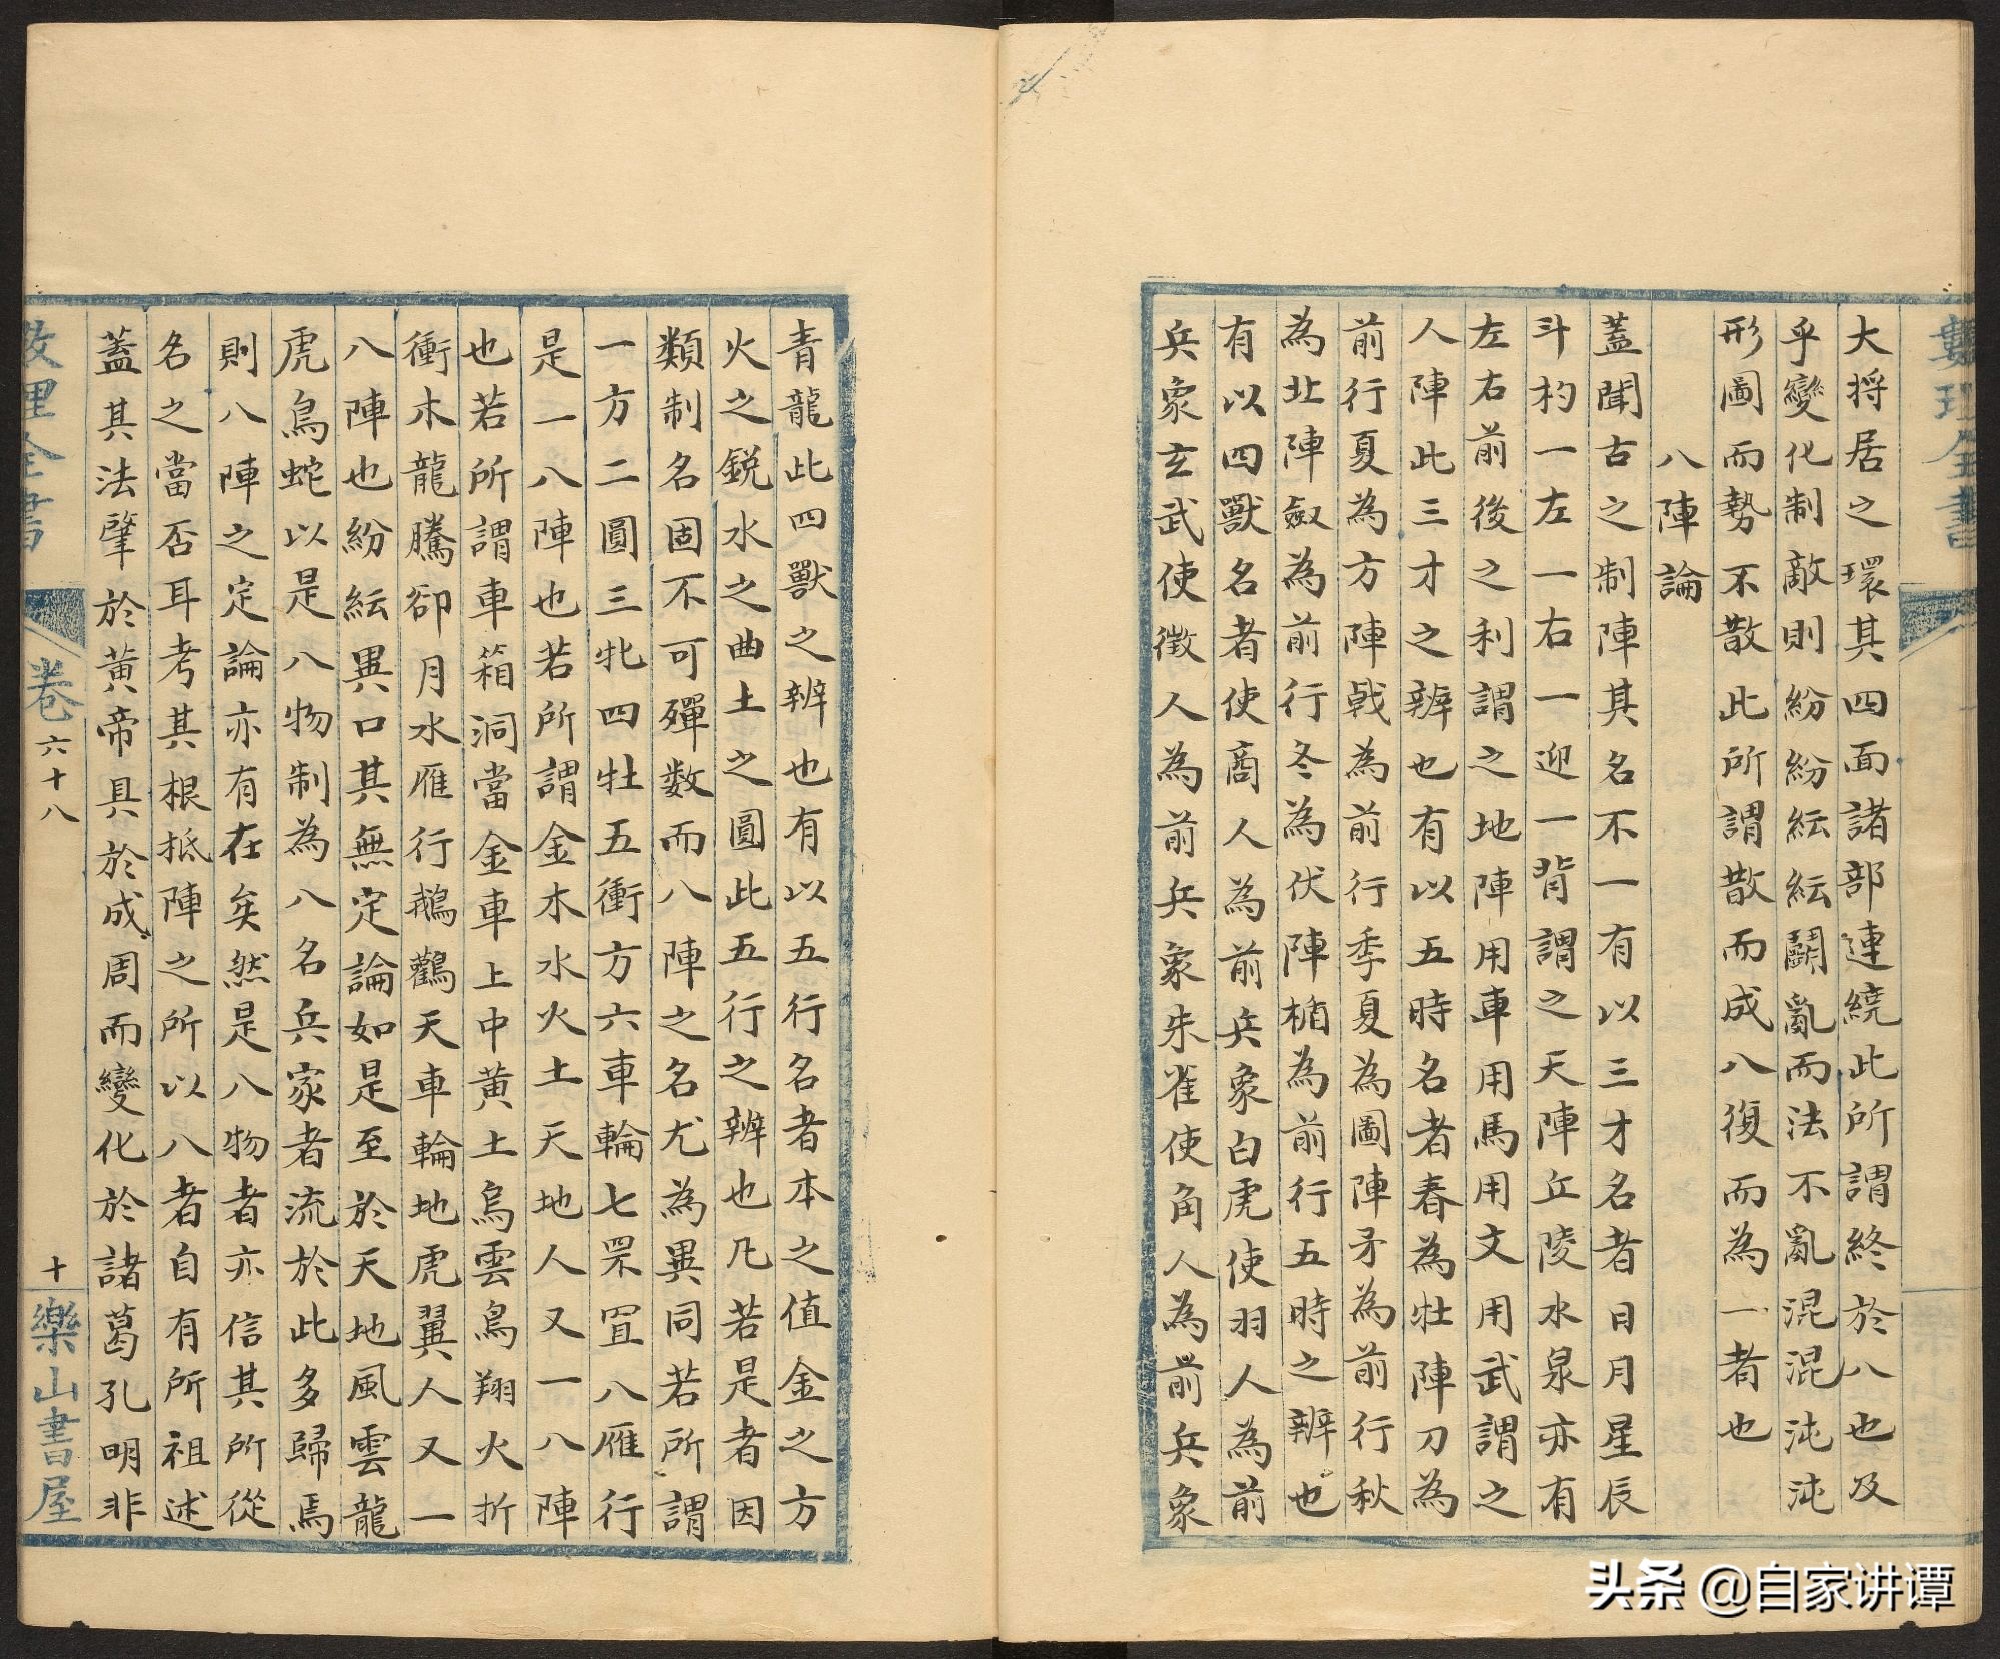 大将居之環其四面諸部連繞此所謂終於八也及
乎變化制敵則紛紛紜紜鬬亂而法不亂混混沌沌
形圖而勢不散此所謂散而成八復而為一者也
八陣論
蓋聞古之制陣其名不一有以三才名者日月星辰
斗杓一左一右一迎一背謂之天陣丘陵水泉亦有
左右前後之利謂之地陣用車用馬用文用武謂之
人陣此三才之辨也有以五時名者春為牡陣刀為
前行夏為方陣戟為前行季夏為圖陣矛為前行秋
為北陣劔為前行冬為伏陣楯為前行五時之辨也
有以四獸名者使商人為前兵象白虎使羽人為前
兵象玄武使徵人為前兵象朱雀使角人為前兵象
青龍此四獸之辨也有以五行名者本之值金之方
火之鋭水之曲土之圓此五行之辨也凡若是者因
類制名固不可殫数而八陣之名尤為異同若所謂
一方二圓三牝四牡五衝方六車輪七罘罝八雁行
是一八陣也若所謂金木水火土天地人又一八陣
也若所謂車箱洞當金車上中黄土烏雲鳥翔火折
衝木龍騰卻月水雁行鵝鸛天車輪地虎翼人又一
八陣也紛紜異口其無定論如是至於天地風雲龍
虎鳥蛇以是八物制為八名兵家者流於此多歸焉
則八陣之定論亦有在矣然是八物者亦信其所從
名之當否耳考其根抵陣之所以八者自有所祖述
蓋其法肇於黄帝具於成周而變化於諸葛孔明非
卷六十八
十
樂山書屋
头条 @自家讲谭